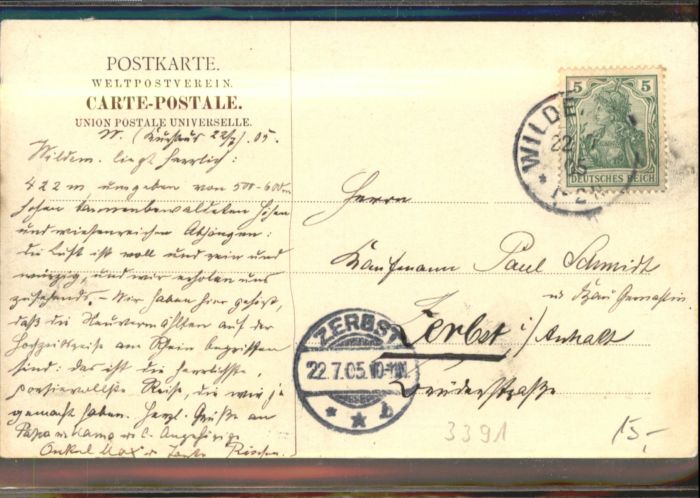 POSTKARTE.
WELTPOSTVEREIN.
CARTE-POSTALE.
UNION POSTALE UNIVERSELLE.
22/7. 05.
Wildem. liegt herrlich:
422 m, umgeben von 500-600 m
hohen tannenbewaldeten Höhen
und wiesenreichen Abhängen:
die Luft ist voll und rein und
würzig, und wir erholen uns
zusehends. - Wir haben hier gehört,
daß die Neuvermählten auf der
Hochzeitsreise am Rhein begriffen
sind: das ist die herrlichste,
poesievollste Reise, die wir je
gemacht haben. Herzl. Grüße an
Papa u. Mama u.
Onkel Max u. Tante
5 5
DEUTSCHES REICH
WILDE
22
05
Herrn
Kaufmann Paul Schmidt
u Frau Gemahlin
Zerbst i/Anhalt
Brüderstraße
ZERBST
22.7.05.10-11N.
* * b
3391
15,-